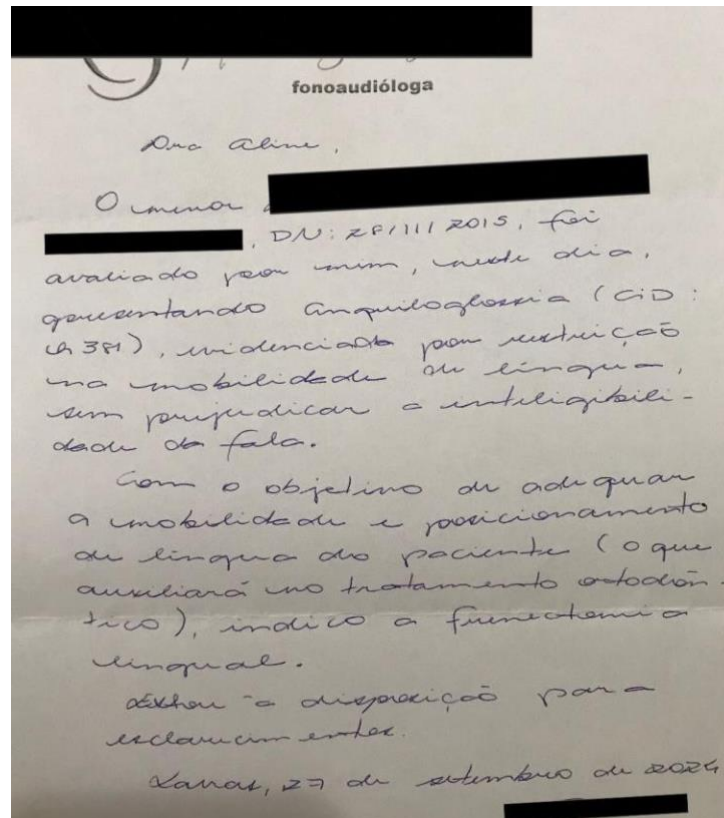 fonoaudióloga
Dra Aline,
O menor
, DN: 28/11/2015, foi
avaliado por mim, neste dia,
apresentando anquiloglossia (CID:
Q381), evidenciada por restrição
na mobilidade de língua,
sem prejudicar a inteligibili-
dade da fala.
Com o objetivo de adequar
a mobilidade e posicionamento
de língua do paciente (o que
auxiliará no tratamento ortodôn-
tico), indico a frenectomia
lingual.
Estou à disposição para
esclarecimentos.
Lavras, 27 de setembro de 2024